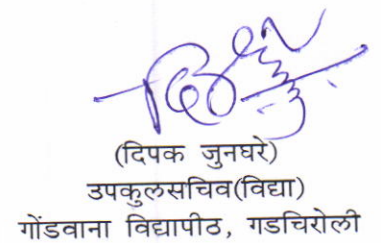 (दिपक जुनघरे)
उपकुलसचिव(विद्या)
गोंडवाना विद्यापीठ, गडचिरोली